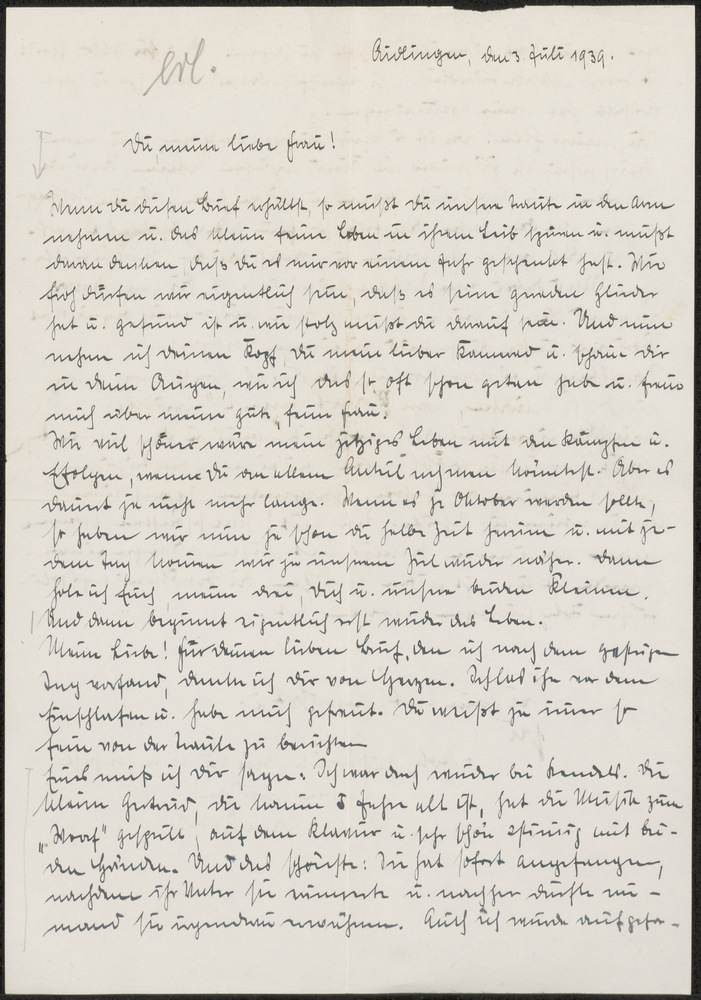 erl.
Aidlingen, den 3. Juli 1939.
Du, meine liebe Frau!
Wenn Du diesen Brief erhältst, so mußt Du unsere Traute in den Arm
nehmen u. das kleine feine Leben in ihrem Leib spüren u. mußt
daran denken, daß Du es mir vor einem Jahr geschenkt hast. Wie
froh dürfen wir eigentlich sein, daß es seine geraden Glieder
hat u. gesund ist u. wie stolz mußt Du darauf sein. Und nun
nehme ich Deinen Kopf, Du mein lieber Kamerad u. schaue Dir
in Deine Augen, wie ich das so oft schon getan habe u. freue
mich über meine gute, feine Frau.
Wie viel schöner wäre mein jetziges Leben mit den Kämpfen u.
Erfolgen, wenn Du an allem Anteil nehmen könntest. Aber es
dauert ja nicht mehr lange. Wenn es je Oktober werden sollte,
so haben wir nun ja schon die halbe Zeit herum u. mit je-
dem Tag kommen wir ja unserem Ziel wieder näher. Dann
hole ich Euch, meine drei, Dich u. unsere beiden Kleinen.
Und dann beginnt eigentlich erst wieder das Leben.
Meine Liebe! Für Deinen lieben Brief, den ich nach dem gestrigen
Tag vorfand, danke ich Dir von Herzen. Ich las ihn vor dem
Einschlafen u. habe mich gefreut. Du weißt ja immer so
fein von der Traute zu berichten
Eines muß ich Dir sagen: Ich war doch wieder bei Kendels. Die
kleine Gertrud, die kaum 5 Jahre alt ist, hat die Musik zum
gespielt, auf dem Klavier u. sehr schön stimmig mit bei-
den Händen. Und das schönste: Sie hat sofort angefangen,
nachdem ihr Vater sie ermunterte u. nachher durfte nie-
mand sie irgendwie erwähnen. Auch ich wurde aufgefor-